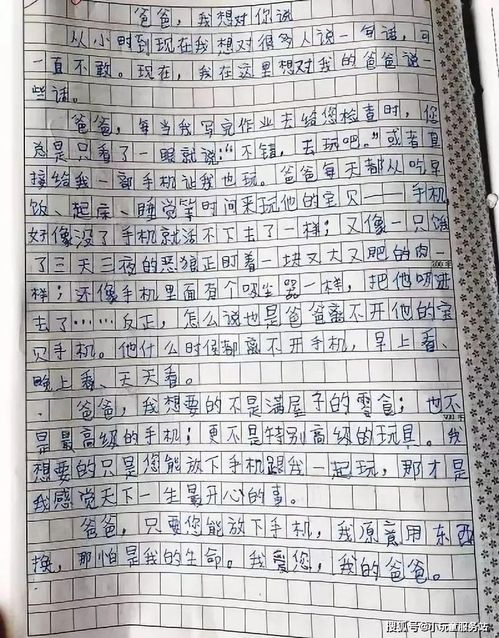 爸爸，我想对你说
从小时到现在我想对很多人说一句话，可
一直不敢。现在，我在这里想对我的爸爸说一
些话。
爸爸，每当我写完作业去给您检查时，您
总是只看了一眼就说：“不错，去玩吧。”或者直
接给我一部手机让我也玩。爸爸每天都从吃早
饭、起床、睡觉等时间来玩他的宝贝——手机，
好像没了手机就活不下去了一样；又像一只饿
了三天三夜的恶狼正盯着一块又大又肥的肉一
样；还像手机里面有个吸尘器一样，把他吸进
去了……反正，怎么说也是爸爸离不开他的宝
贝手机。他什么时候都离不开手机，早上看、
晚上看、天天看。
爸爸，我想要的不是满屋子的零食；也不
是最高级的手机；更不是特别高级的玩具。我
想要的只是您能放下手机跟我一起玩，那才是
我感觉天下一生最开心的事。
爸爸，只要您能放下手机，我原意用东西
换，那怕是我的生命。我爱您，我的爸爸。
搜狐号@小玩童服务站